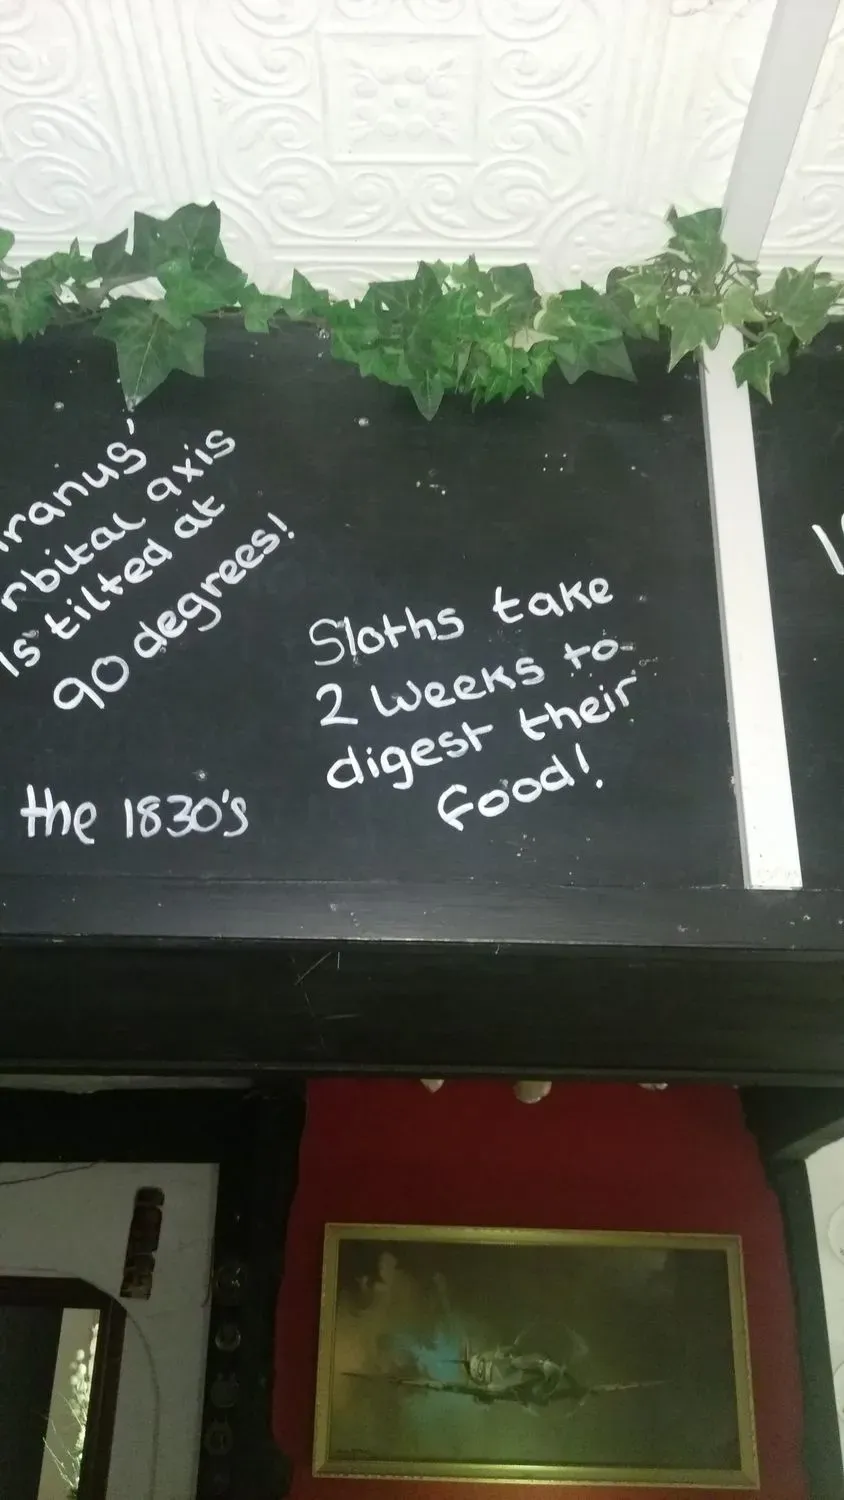 ranus'
rbital axis
is tilted at
90 degrees!
the 1830's
Sloths take
2 weeks to
digest their
food!